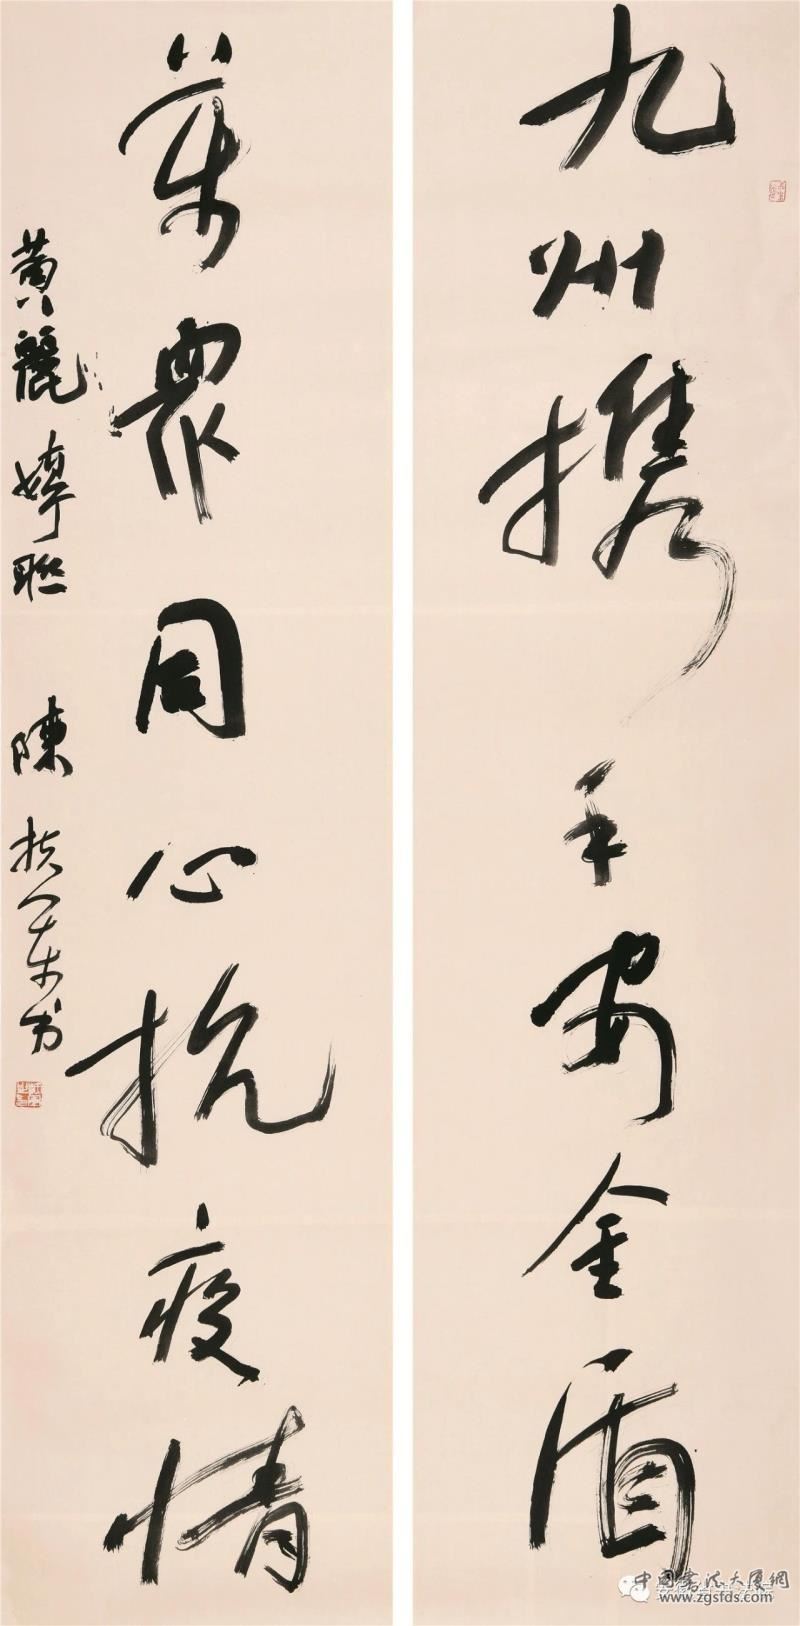 九州携手安金盾
萬眾同心抗疫情
黄麗婷聯 陳 书
中国書法大厦網
www.zgsfds.com